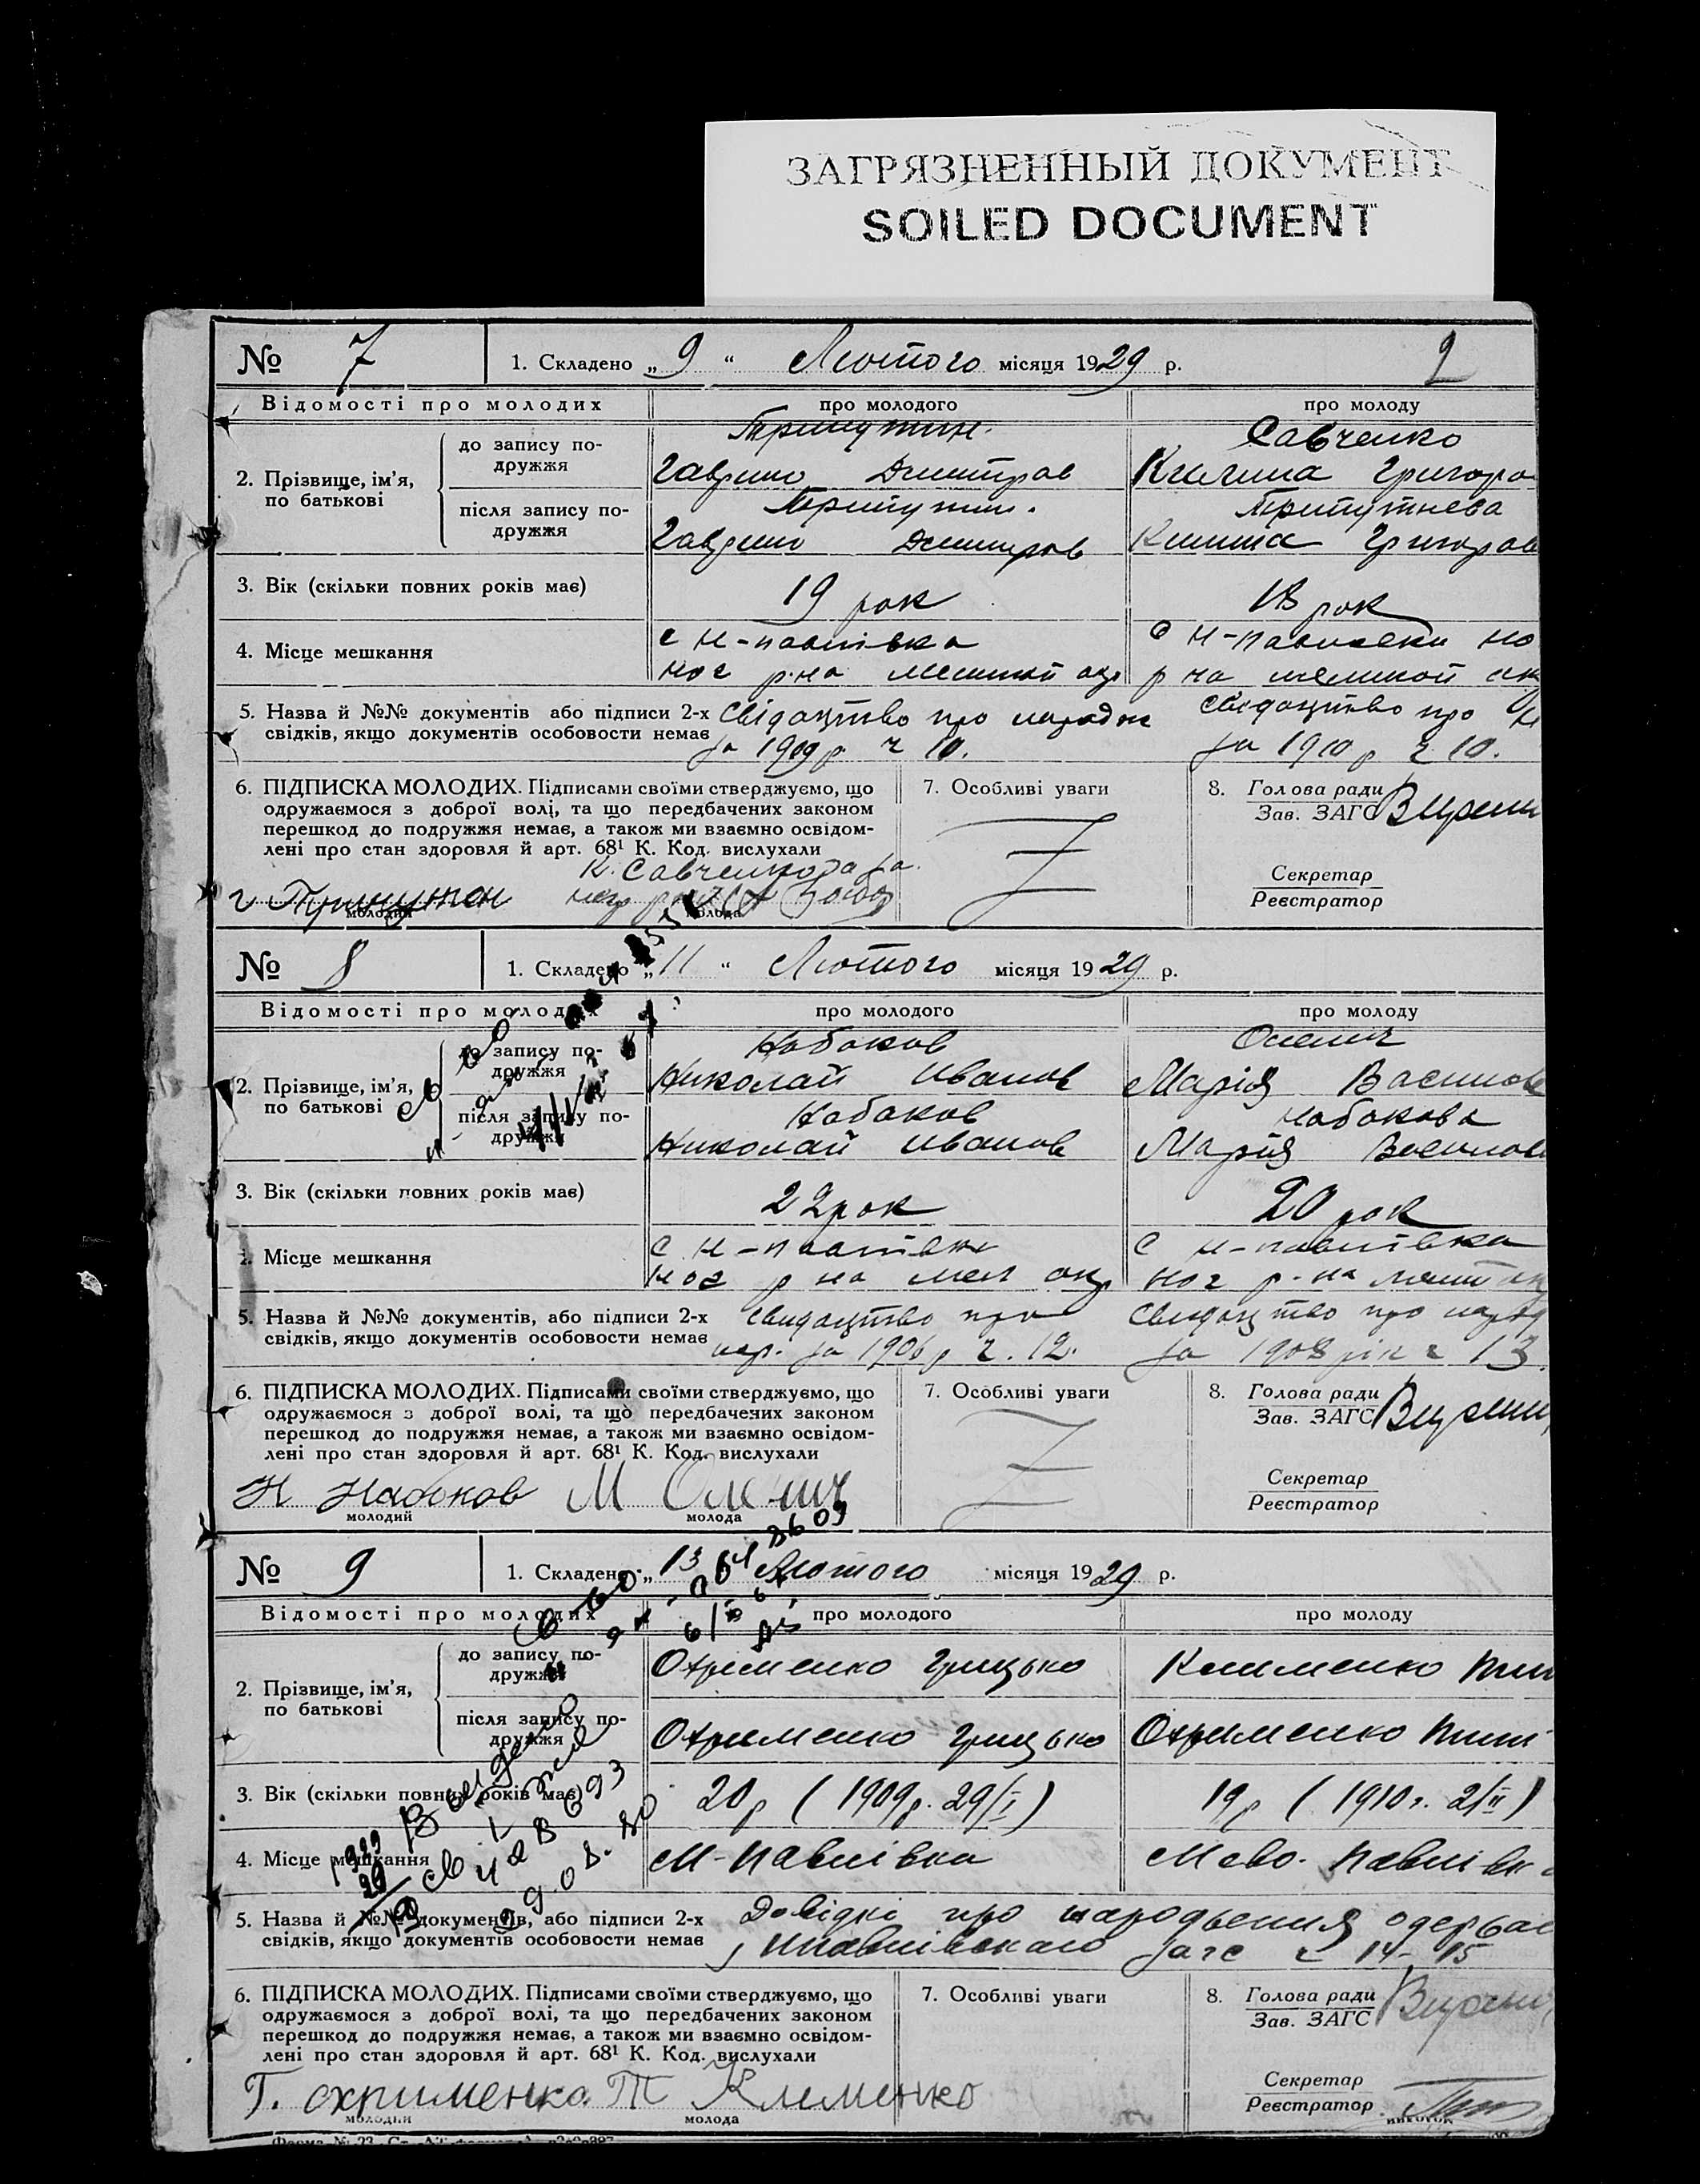 ЗАГРЯЗНЕННЫЙ ДОКУМЕНТ
SOILED DOCUMENT
2
№ 7
1. Складено „ 9 “ Лютого місяця 1929 р.
Відомості про молодих
про молодого
про молоду
2. Прізвище, ім'я, по батькові
до запису по-
дружжя
Припутин.
Гаврило Дмитров
Савченко
Килина Григоро
після запису по-
дружжя
Припутин.
Гаврило Дмитров
Припутнева
Килина Григоров
3. Вік (скільки повних років має)
19 рок
18 рок
4. Місце мешкання
с Н-павлівка
ног р-на
с Н-павлівки но
р на
5. Назва й №№ документів або підписи 2-х
свідків, якщо документів особовости немає
Свідоцтво про народж
за 1909 р ч 10.
свідоцтво про н
за 1910 р ч 10.
6. ПІДПИСКА МОЛОДИХ. Підписами своїми стверджуємо, що
одружаємося з доброї волі, та що передбачених законом
перешкод до подружжя немає, а також ми взаємно освідом-
лені про стан здоровля й арт. 68¹ К. Код. вислухали
К. Савченко
г Припутен
молодий
молода
7. Особливі уваги
8. Голова ради
Зав. ЗАГС
Секретар
Реєстратор
№ 8
1. Складено „ 11 “ Лютого місяця 1929 р.
Відомості про молодих
про молодого
про молоду
2. Прізвище, ім'я,
по батькові
до запису по-
дружжя
Набоков
Николай Иванов
Марія Василов
після запису по-
дружжя
Набоков
Николай Иванов
Набокова
Марія Василов
3. Вік (скільки повних років має)
22 рок
20 рок
4. Місце мешкання
с Н-павлівки
ног р на мел окр
с Н-павлівка
ног р-на
5. Назва й №№ документів, або підписи 2-х
свідків, якщо документів особовости немає
свидоцтво про
нар. за 1906 р ч. 12.
Свидоцтво про народ
за 1908 рік ч 13.
6. ПІДПИСКА МОЛОДИХ. Підписами своїми стверджуємо, що
одружаємося з доброї волі, та що передбачених законом
перешкод до подружжя немає, а також ми взаємно освідом-
лені про стан здоровля й арт. 68¹ К. Код. вислухали
Н Набоков
молодий
молода
7. Особливі уваги
8. Голова ради
Зав. ЗАГС
Секретар
Реєстратор
№ 9
1. Складено „ 13 Лютого місяця 1929 р.
Відомості про молодих
про молодого
про молоду
2. Прізвище, ім'я,
по батькові
до запису по-
дружжя
Охрименко Грицько
Клименко
після запису по-
дружжя
Охрименко Грицько
Охрименко
3. Вік (скільки повних років має)
20 р (1909 р. 29/I)
19 р (1910 г. 2/II)
4. Місце мешкання
Н-Павлівка
Ново-Павлівк
5. Назва й №№ документів, або підписи 2-х
свідків, якщо документів особовости немає
Довідкі про народження одержа
загс ч 14-15
6. ПІДПИСКА МОЛОДИХ. Підписами своїми стверджуємо, що
одружаємося з доброї волі, та що передбачених законом
перешкод до подружжя немає, а також ми взаємно освідом-
лені про стан здоровля й арт. 68¹ К. Код. вислухали
Г. охрименко. Т Клименко
молодий
молода
7. Особливі уваги
8. Голова ради
Зав. ЗАГС
Секретар
Реєстратор